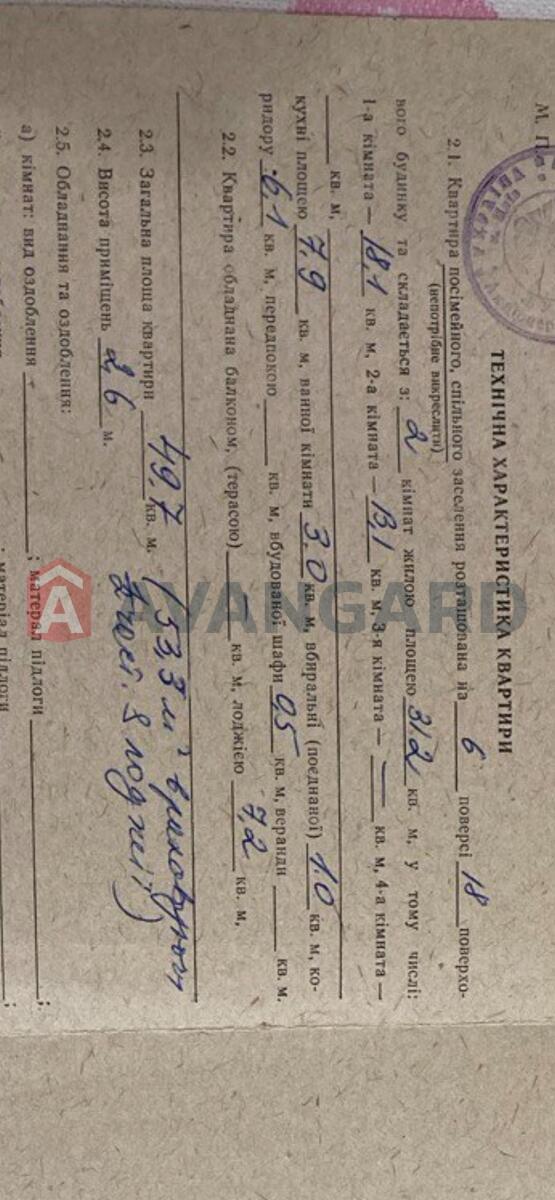 М. П.
ТЕХНІЧНА ХАРАКТЕРИСТИКА КВАРТИРИ
2.1. Квартира посімейного, спільного заселення розташована на 6 поверсі 18 поверхо-
(непотрібне викреслити)
вого будинку та складається з: 2 кімнат жилою площею 31,2 кв. м, у тому числі:
1-а кімната — 18,1 кв. м, 2-а кімната — 13,1 кв. м, 3-я кімната — — кв. м, 4-а кімната —
кв. м,
кухні площею 7,9 кв. м, ванної кімнати 3,0 кв. м, вбиральні (поєднаної) 1.0 кв. м, ко-
ридору 6,1 кв. м, передпокою кв. м, вбудованої шафи 0,5 кв. м, веранди кв. м.
2.2. Квартира обладнана балконом, (терасою) — кв. м, лоджією 7,2 кв. м,
2.3. Загальна площа квартири 49,7 кв. м. (53,3 м²
лоджії)
2.4. Висота приміщень 2,6 м.
2.5. Обладнання та оздоблення:
а) кімнат: вид оздоблення - ; матерал підлоги ;
; матеріал підлоги ;
AVANGARD